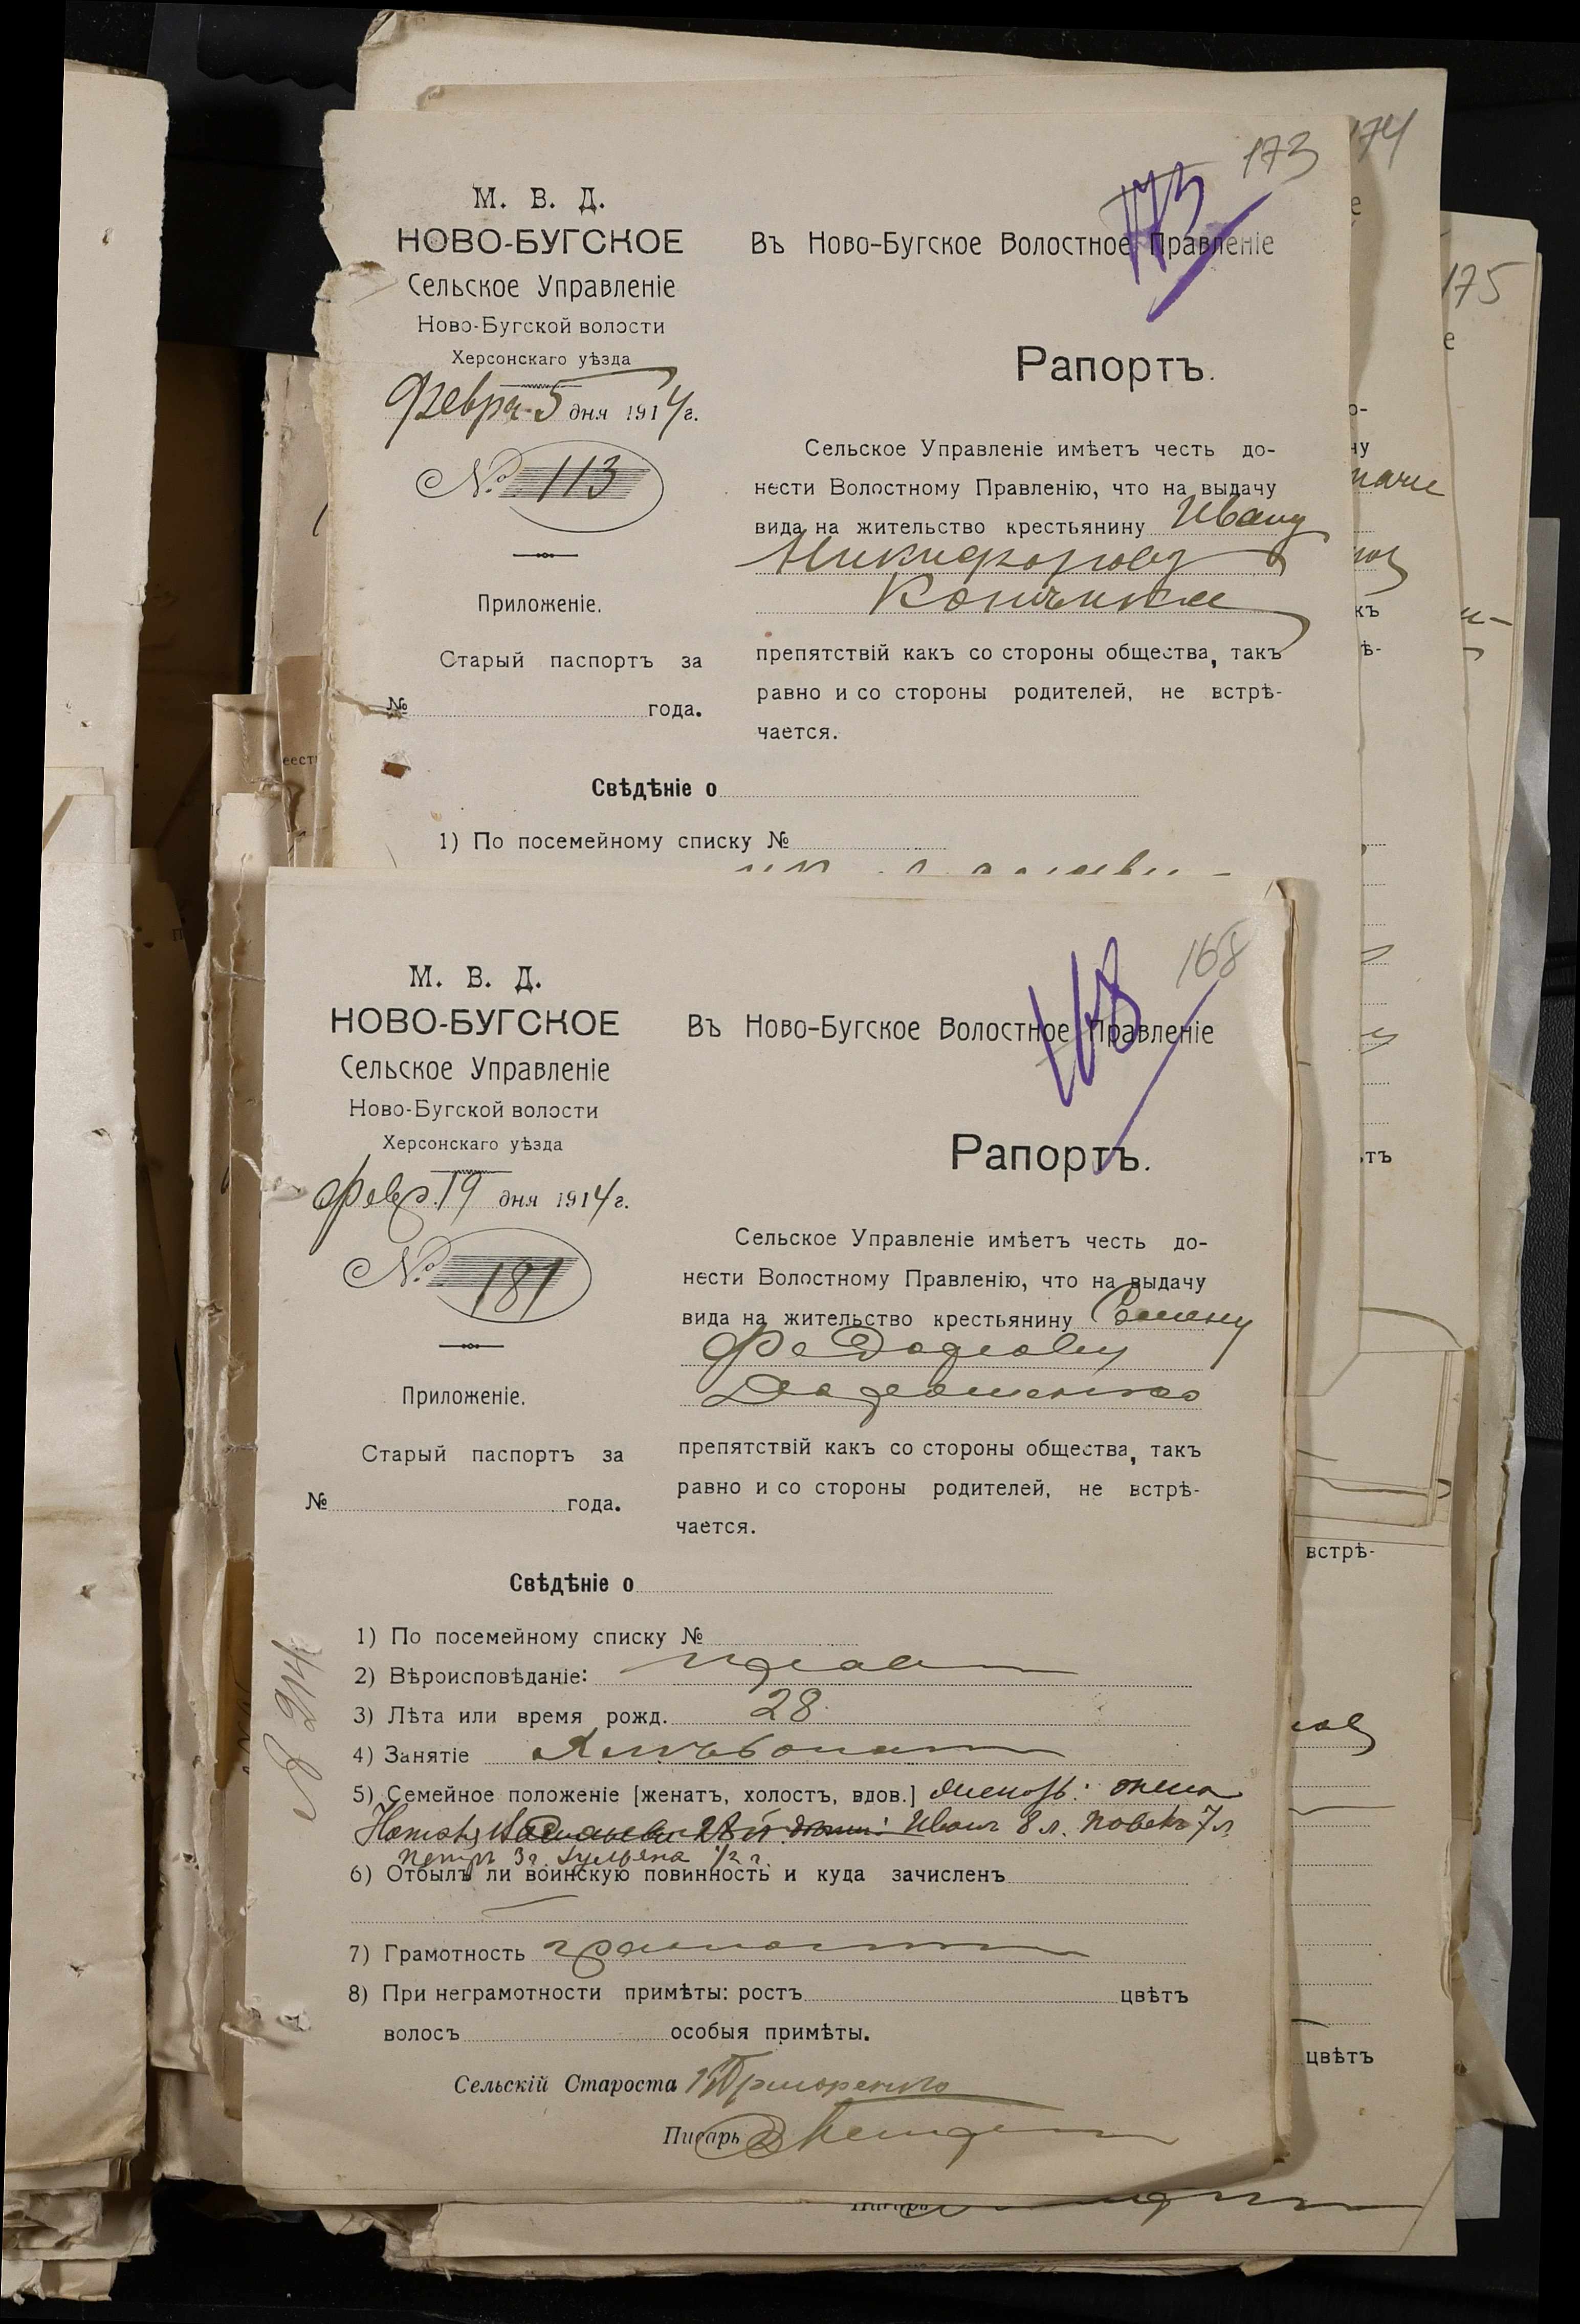 174
173
173
175
М. В. Д.
НОВО-БУГСКОЕ
Сельское Управленіе
Ново-Бугской волости
Херсонскаго уѣзда
Февр. 5 дня 1914 г.
№ 113
Приложеніе.
Старый паспортъ за
№ года.
Въ Ново-Бугское Волостное Правленіе
Рапортъ.
Сельское Управленіе имѣетъ честь до-
нести Волостному Правленію, что на выдачу
вида на жительство крестьянину Ивану
Никифорову
препятствій какъ со стороны общества, такъ
равно и со стороны родителей, не встрѣ-
чается.
Свѣдѣніе о
1) По посемейному списку №
168
168
М. В. Д.
НОВО-БУГСКОЕ
Сельское Управленіе
Ново-Бугской волости
Херсонскаго уѣзда
Февр. 19 дня 1914 г.
№ 181
Приложеніе.
Старый паспортъ за
№ года.
Въ Ново-Бугское Волостное Правленіе
Рапортъ.
Сельское Управленіе имѣетъ честь до-
нести Волостному Правленію, что на выдачу
вида на жительство крестьянину
препятствій какъ со стороны общества, такъ
равно и со стороны родителей, не встрѣ-
чается.
Свѣдѣніе о
1) По посемейному списку №
2) Вѣроисповѣданіе: прав
3) Лѣта или время рожд. 28
4) Занятіе
5) Семейное положеніе [женатъ, холостъ, вдов.] жена
Иванъ 8 л. 7 л.
Петръ 3 г. 1/2 г.
6) Отбылъ ли воинскую повинность и куда зачисленъ
7) Грамотность
8) При неграмотности примѣты: ростъ цвѣтъ
волосъ особыя примѣты.
Сельскій Староста
Писарь
встрѣ-
цвѣтъ